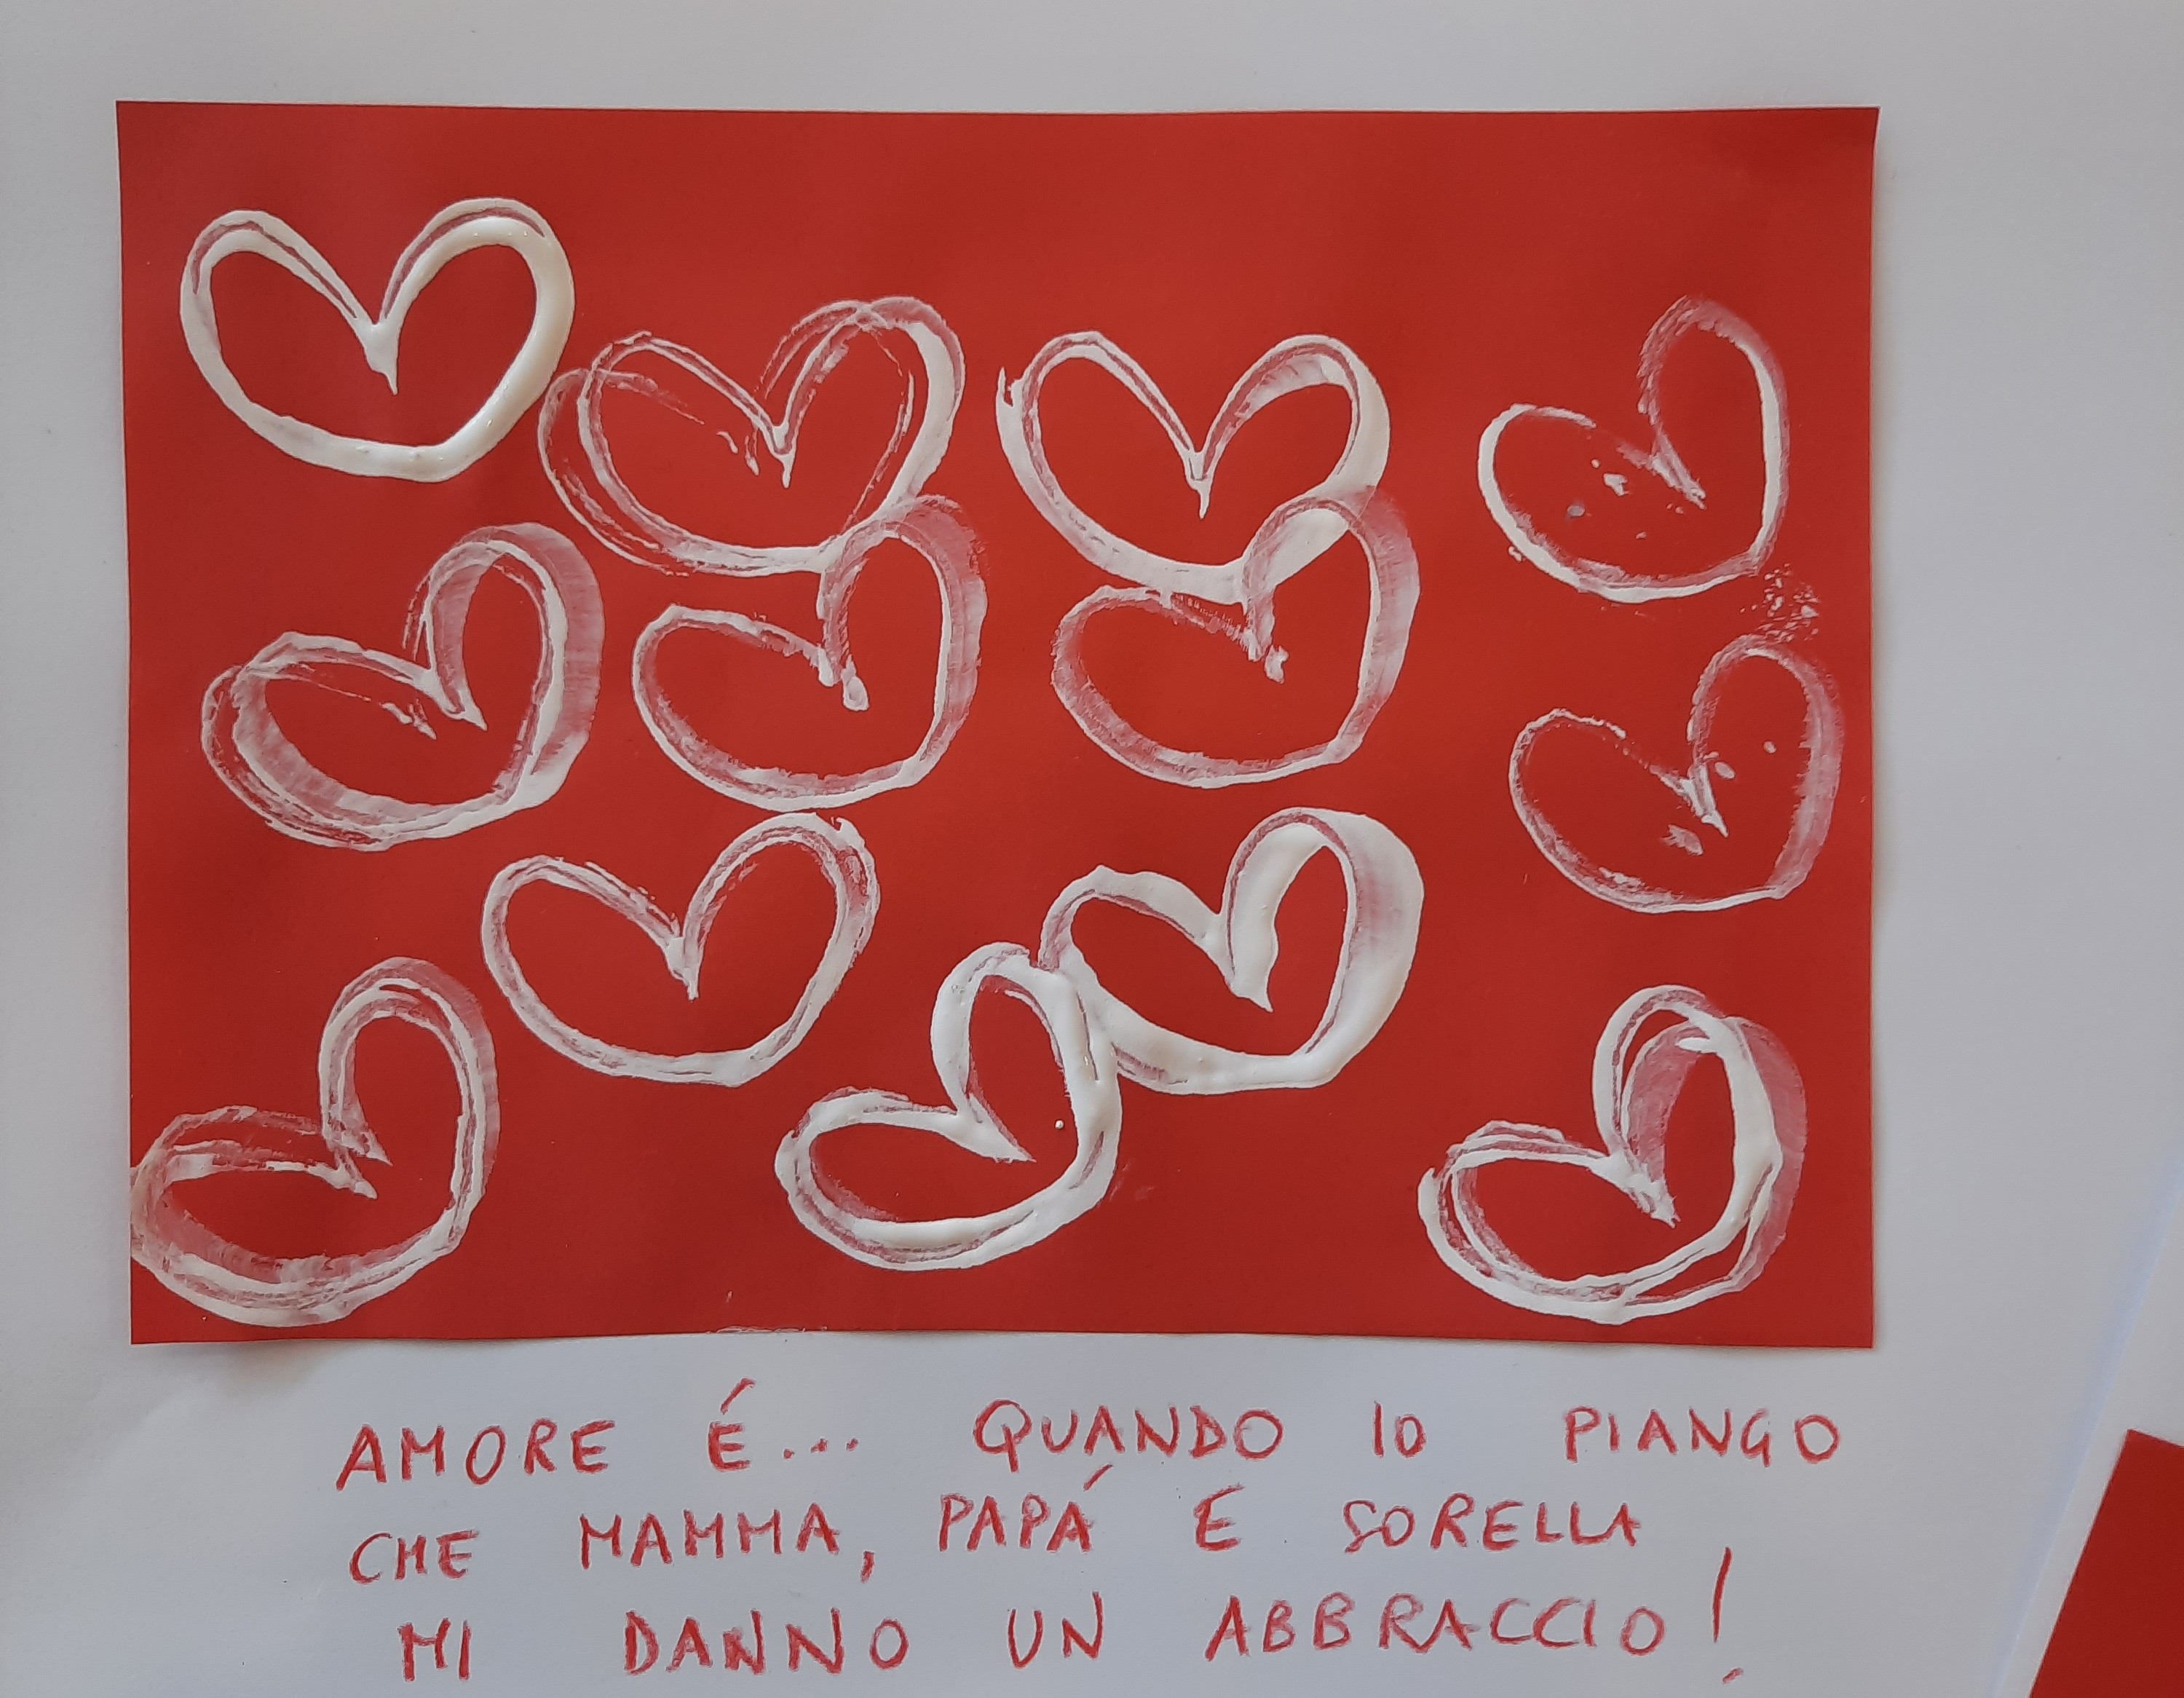 AMORE É... QUANDO IO PIANGO
CHE MAMMA, PAPÁ E SORELLA
MI DANNO UN ABBRACCIO!